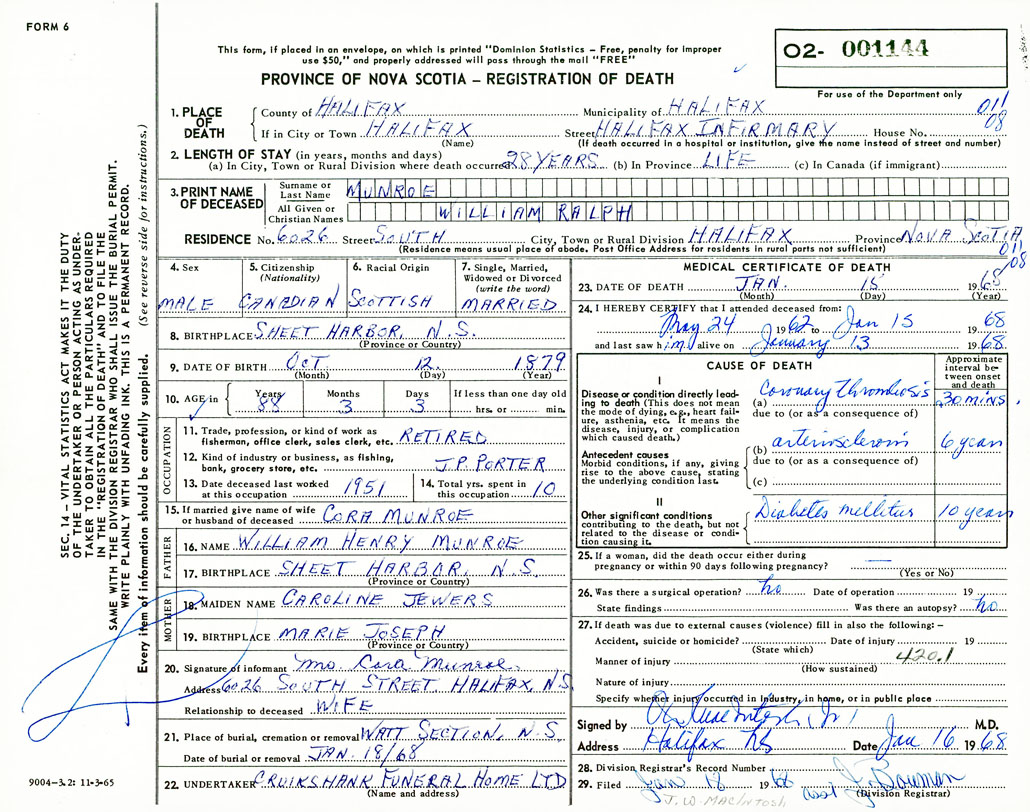 FORM 6
This form, if placed in an envelope, on which is printed "Dominion Statistics – Free, penalty for improper
use $50," and properly addressed will pass through the mail "FREE"
PROVINCE OF NOVA SCOTIA – REGISTRATION OF DEATH
O2- 001144
For use of the Department only
011
08
1. PLACE OF DEATH
County of HALIFAX Municipality of HALIFAX
If in City or Town HALIFAX Street HALIFAX INFIRMARY House No.
(Name) (If death occurred in a hospital or institution, give the name instead of street and number)
2. LENGTH OF STAY (in years, months and days)
(a) In City, Town or Rural Division where death occurred 28 YEARS (b) In Province LIFE (c) In Canada (if immigrant)
3. PRINT NAME OF DECEASED
Surname or Last Name MUNROE
All Given or Christian Names WILLIAM RALPH
RESIDENCE No. 6026 Street SOUTH City, Town or Rural Division HALIFAX Province NOVA SCOTIA
(Residence means usual place of abode. Post Office Address for residents in rural parts not sufficient)
011
08
SEC. 14 – VITAL STATISTICS ACT MAKES IT THE DUTY
OF THE UNDERTAKER OR PERSON ACTING AS UNDER-
TAKER TO OBTAIN ALL THE PARTICULARS REQUIRED
IN THE "REGISTRATION OF DEATH" AND TO FILE THE
SAME WITH THE DIVISION REGISTRAR WHO SHALL ISSUE THE BURIAL PERMIT.
WRITE PLAINLY WITH UNFADING INK. THIS IS A PERMANENT RECORD.
Every item of information should be carefully supplied. (See reverse side for instructions.)
4. Sex
MALE
5. Citizenship
(Nationality)
CANADIAN
6. Racial Origin
SCOTTISH
7. Single, Married,
Widowed or Divorced
(write the word)
MARRIED
8. BIRTHPLACE SHEET HARBOR, N.S.
(Province or Country)
9. DATE OF BIRTH OCT 12 1879
(Month) (Day) (Year)
10. AGE in Years Months Days If less than one day old
88 3 3 hrs. or min.
OCCUPATION
11. Trade, profession, or kind of work as
fisherman, office clerk, sales clerk, etc. RETIRED
12. Kind of industry or business, as fishing,
bank, grocery store, etc. J.P. PORTER
13. Date deceased last worked
at this occupation 1951
14. Total yrs. spent in
this occupation 10
15. If married give name of wife
or husband of deceased CORA MUNROE
FATHER
16. NAME WILLIAM HENRY MUNROE
17. BIRTHPLACE SHEET HARBOR, N.S.
(Province or Country)
MOTHER
18. MAIDEN NAME CAROLINE JEWERS
19. BIRTHPLACE MARIE JOSEPH
(Province or Country)
20. Signature of informant Mrs. Cora Munroe
Address 6026 SOUTH STREET HALIFAX, N.S.
Relationship to deceased WIFE
21. Place of burial, cremation or removal WATT SECTION, N.S.
Date of burial or removal JAN. 18/68
22. UNDERTAKER CRUIKSHANK FUNERAL HOME LTD
(Name and address)
9004-3.2: 11-3-65
MEDICAL CERTIFICATE OF DEATH
23. DATE OF DEATH JAN. 15 1968
(Month) (Day) (Year)
24. I HEREBY CERTIFY that I attended deceased from:
May 24 1962 to Jan 15 1968
and last saw him alive on January 13 1968
CAUSE OF DEATH
Approximate
interval be-
tween onset
and death
I
Disease or condition directly lead-
ing to death (This does not mean
the mode of dying, e.g., heart fail-
ure, asthenia, etc. It means the
disease, injury, or complication
which caused death.)
(a) Coronary thrombosis 30 mins.
due to (or as a consequence of)
Antecedent causes
Morbid conditions, if any, giving
rise to the above cause, stating
the underlying condition last.
(b) arteriosclerosis 6 years
due to (or as a consequence of)
(c)
II
Other significant conditions
contributing to the death, but not
related to the disease or condi-
tion causing it.
Diabetes mellitus 10 years
25. If a woman, did the death occur either during
pregnancy or within 90 days following pregnancy? —
(Yes or No)
26. Was there a surgical operation? no Date of operation 19
State findings Was there an autopsy? no
27. If death was due to external causes (violence) fill in also the following: –
Accident, suicide or homicide? Date of injury 19
(State which)
420.1
Manner of injury
(How sustained)
Nature of injury
Specify whether injury occurred in Industry, in home, or in public place
Signed by M.D.
Address Halifax NS Date Jan 16 1968
28. Division Registrar's Record Number
29. Filed Jan 18 1968 asst J. Bowman
(Division Registrar)
J. W. MACINTOSH